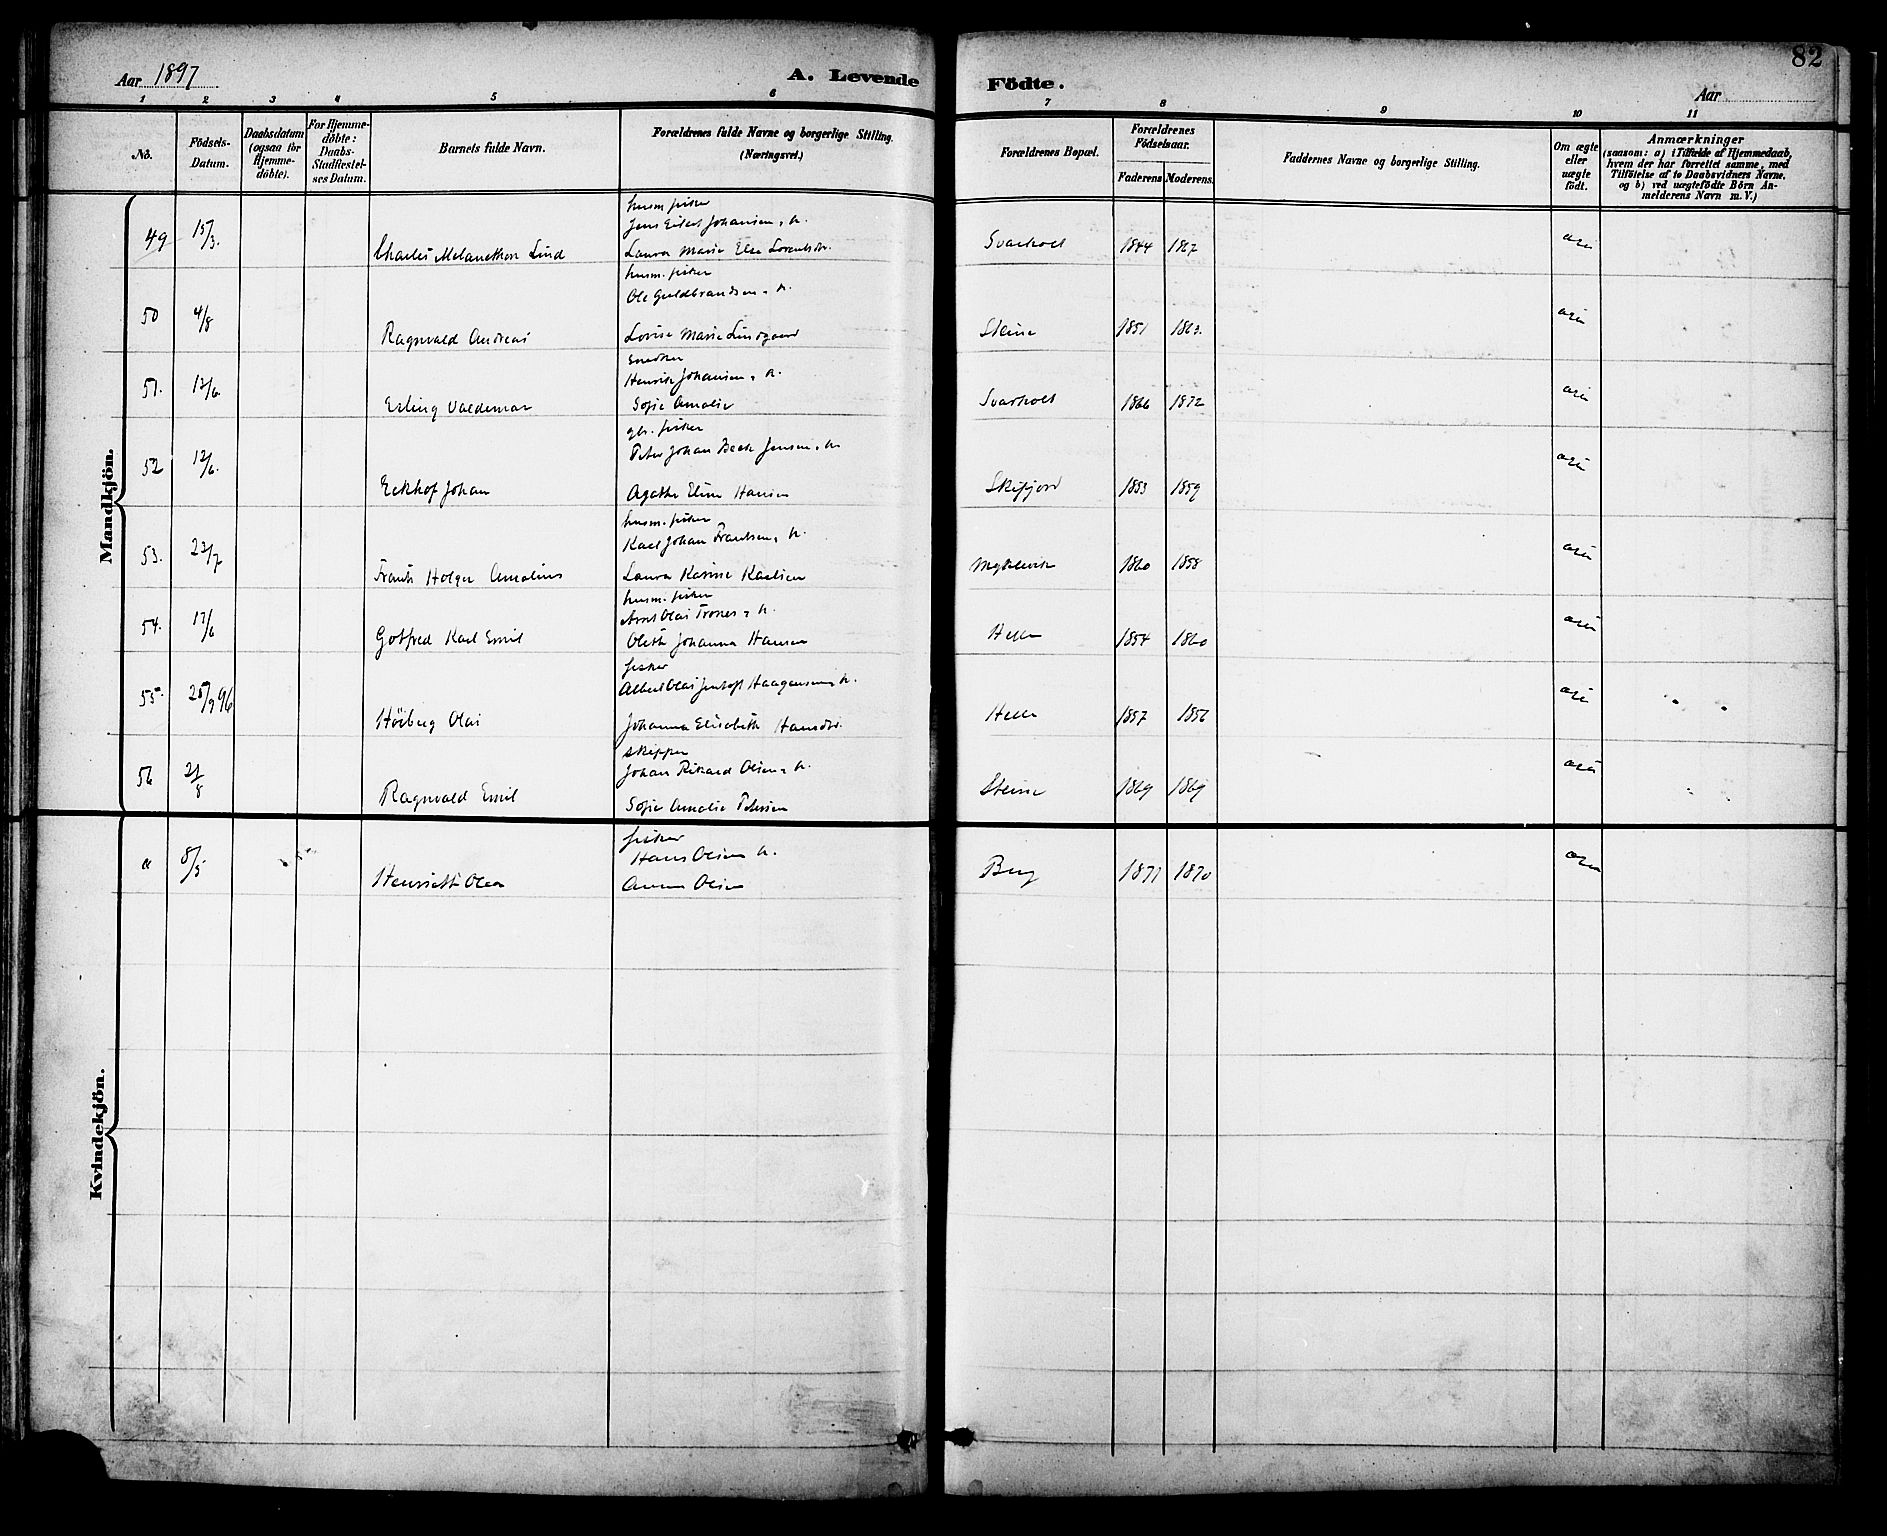 82
Aar 1897
A. Levende Födte.
Aar
1 2 3 4 5 6 7 8 9 10 11
No.
Födsels-Datum.
Daabsdatum (ogsaa for Hjemme-döbte).
For Hjemme-döbte: Daabs-Stadfæstel-ses Datum.
Barnets fulde Navn.
Forældrenes fulde Navne og borgerlige Stilling. (Næringsvei.)
Forældrenes Bopæl.
Forældrenes Födselsaar.
Faderens Moderens.
Faddernes Navne og borgerlige Stilling.
Om ægte eller uægte födt.
Anmærkninger
(saasom: a) i Tilfælde af Hjemmedaab, hvem der har forrettet samme, med Tilföielse af to Daabsvidners Navne, og b) ved uægtefödte Börn An-melderens Navn m. V.)
Mandkjön.
husm. fisker
49 15/3. Jens Eilert Johansen, h.
Charles Melancthon Lind Laura Marie Else Lorentsdr. Svarholt 1844 1867
husm. fisker
50 4/8 Ole Guldbrandsen, h.
Ragnvald Andreas Lovise Marie Lindgaard Steine 1851 1863.
snedker
51. 12/6 Henrik Johansen, h.
Erling Valdemar Sofie Amalie Svarholt 1866 1872
gbr. fisker
52 12/6. Peter Johan Beck Jensen, h.
Eckhof Johan Agathe Eline Hansen Skifjord 1853 1859
husm. fisker
53. 22/7 Karl Johan Frantsen, h.
Frants Holger Amalius Laura Karine Karlsen Myklevik 1860 1858
husm. fisker
54. 17/6 Arnt Olai Trones, h.
Gotfred Karl Emil Oleth Johanna Hansen Helle 1854 1860
fisker
55. 25/9 96 Albert Olai Jentoft Haagensen, h.
Höiberg Olai Johanna Elisabeth Hansdtr. Helle 1857 1856
skipper
56 21/8 Johan Rikard Olsen, h.
Ragnvald Emil Sofie Amalie Petersen Steine 1869 1869
Kvindekjön.
fisker
a 8/5 Hans Olsen h.
Henriette Olea Anna Olsen Berg 1871 1870